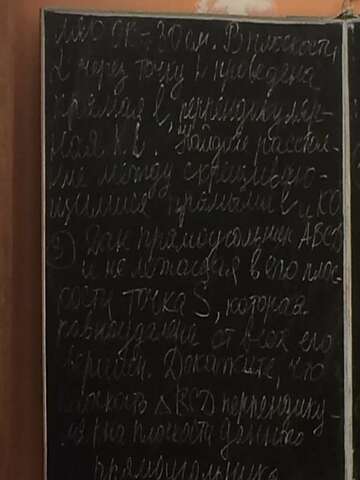 ОК = 30 см. В плоскости
α через точку K проведена
прямая l, перпендикуляр-
ная KL. Найдите расстоя-
ние между скрещиваю-
щимися прямыми l и KO
2) Дан прямоугольник ABCD
и не лежащая в его плос-
кости точка S, которая
от всех его
вершин. Докажите, что
плоскость △ BCD перпендику-
лярна плоскости данного
прямоугольника